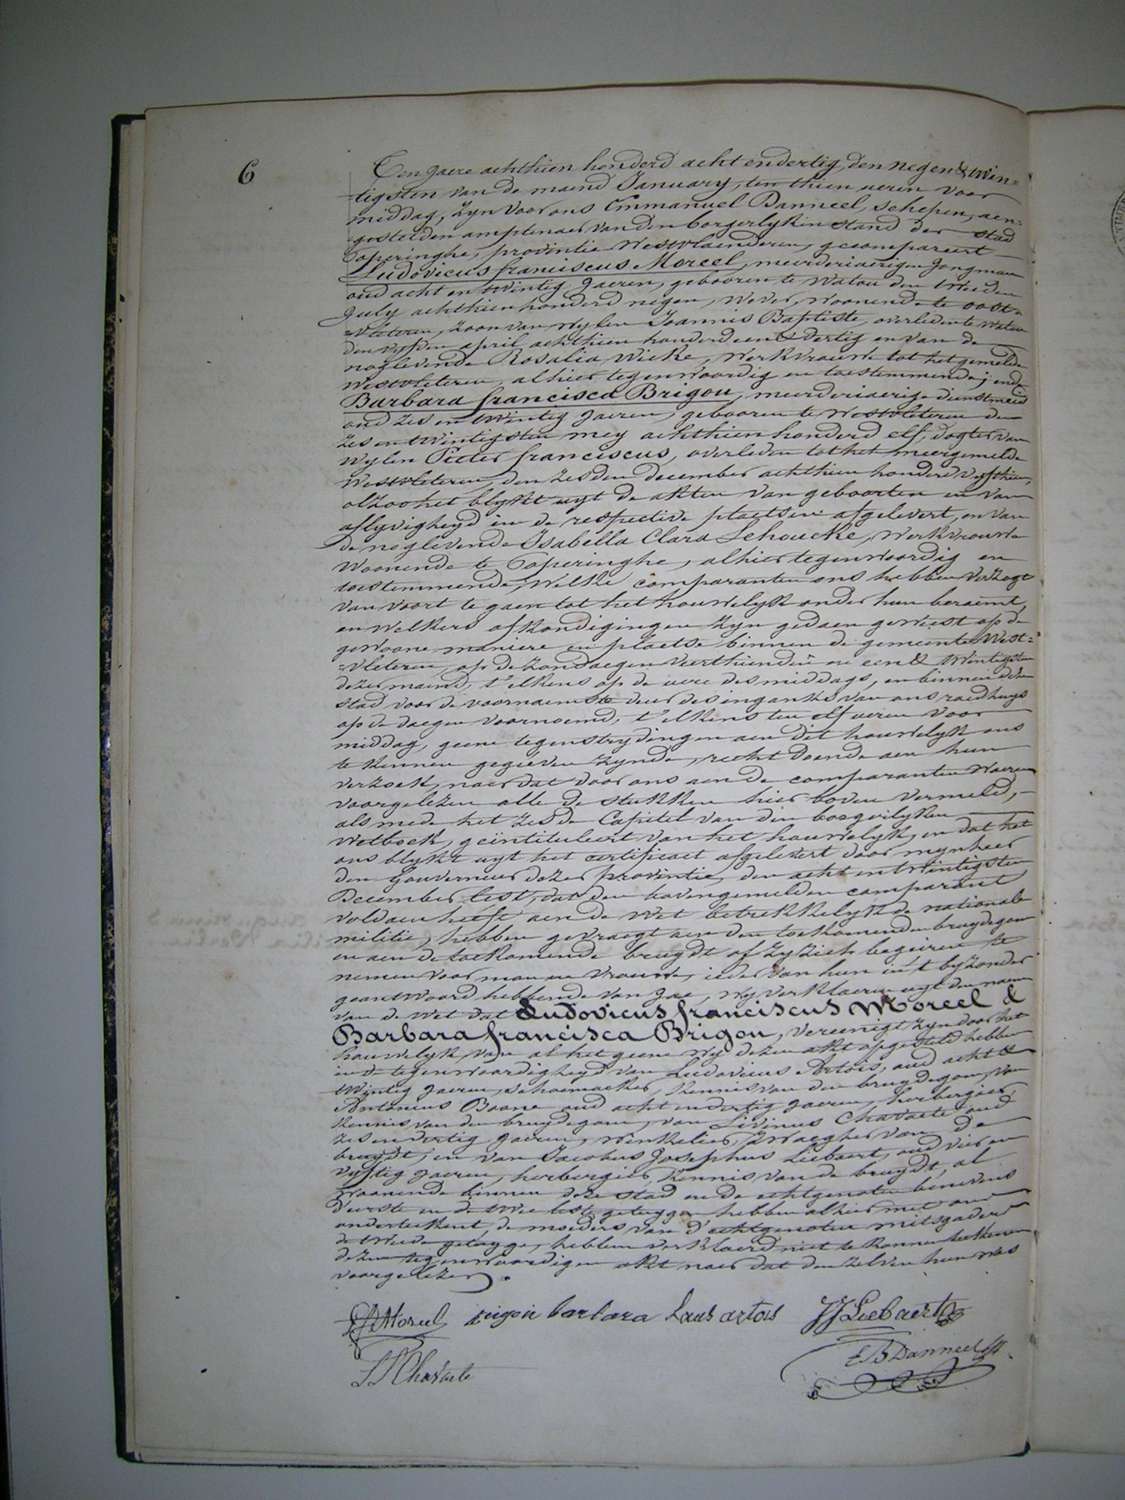 6
Ten jaere achthien honderd acht en dertig, den negen & twin=
tigsten van de maend January, ten thien ueren voor
middag, zyn voor ons Emmanuel Danneel, schepen, aen=
gestelden amptenaer van den borgerlyken stand der stad
Poperinghe, provintie Westvlaenderen, gecompareert
Ludovicus franciscus Morcel, meerderjaerigen jongman
oud acht en twintig jaeren, gebooren te Watou den tweeden
July achthien honderd negen, wever, woonende te oost=
=Vleteren, zoon van wylen Joannis Baptiste, overleden te Watou
den vyfden april achthien honderd een & dertig en van de
nog levende Rosalia Wicke, werkvrouwe tot het gemelde
Westvleteren, alhier tegenwoordig en toestemmende; ende
Barbara francisca Brigou, meerderjaerige dienstmeid
oud zes en twintig jaeren, gebooren te Westvleteren den
zes en twintigsten mey achthien honderd elf, dogter van
wylen Pieter franciscus, overleden tot het meergemelde
Westvleteren, den zesden december achthien honderd vyfthien,
alzoo het blykt uyt de akten van geboorten en van
aflyvigheyd in de respective plaetsen afgelevert, en van
de nog levende Isabella Clara Lehoucke, werkvrouwe
woonende te Poperinghe, alhier tegenwoordig en
toestemmende, Welke comparanten ons hebben verzogt
van voort te gaen tot het houwelyk onder hun beraemt,
en welkers afkondigingen zyn gedaen geweest op de
gewoone maniere en plaetse binnen de gemeente West=
=vleteren, op de zondaegen veerthienden en een & twintigsten
dezer maend, t'elkens op de uere des middags, en binnen deze
stad voor de voornaemste deur des inganks van ons raedhuys
op de daegen voornoemd, t'elkens ten elf ueren voor
middag, geene tegenstrydingen aen dit houwelyk ons
te kennen gegeven zynde, recht doende aen hun
verzoek, naer dat door ons aen de comparanten waeren
voorgelezen alle de stukken hier boven vermeld,
als mede het zesde Capittel van den borgerlyken
Wetboek, geintituleert van het houwelyk, en dat het
ons blykt uyt het certificaet afgelevert door mynheer
den Gouverneur dezer provintie, den acht en twintigsten
December lest, dat den bovengemelden comparant
voldaen heeft aen de wet betrekkelyk de nationale
militie, hebben gevraegt aen den toekomenden bruydegom
en aen de toekomende bruydt of zy zich begeiren te
nemen voor man en vrouw, ieder van hun in 't byzonder
geantwoord hebbende van Jae, wy verklaeren uyt den naem
van de Wet dat Ludovicus franciscus Morcel &
Barbara francisca Brigou, vereenigt zyn door het
houwelyk, van al het geene wy dezen akt opgesteld hebben
in de tegenwoordigheyd van Ludovicus Artois, oud acht &
twintig jaeren, schoenmaeker, kennis van den bruydegom, van
Antonius Boone oud acht en dertig jaeren, herbergier
kennis van den bruydegom, van Livinus Chavaete oud
zes en dertig jaeren, winkelier, zwaegher van de
bruydt, en van Jacobus Josephus Liebaert, oud vier en
vyftig jaeren, herbergier, kennis van de bruydt, al
woonende binnen deze stad en de echtgenoten benevens
d'eerste en de twee leste getuygen hebben alhier met ons
onderteekent, de moeders van d'echtgenoten mitsgaders
de tweede getuyge, hebben verklaerd niet te konnen teekenen
dezen tegenwoordigen akt naer dat den zelven hun was
voorgelezen.
Morcel brigou barbara Louis artois JJ Liebaert
L Chavaete E B Danneel